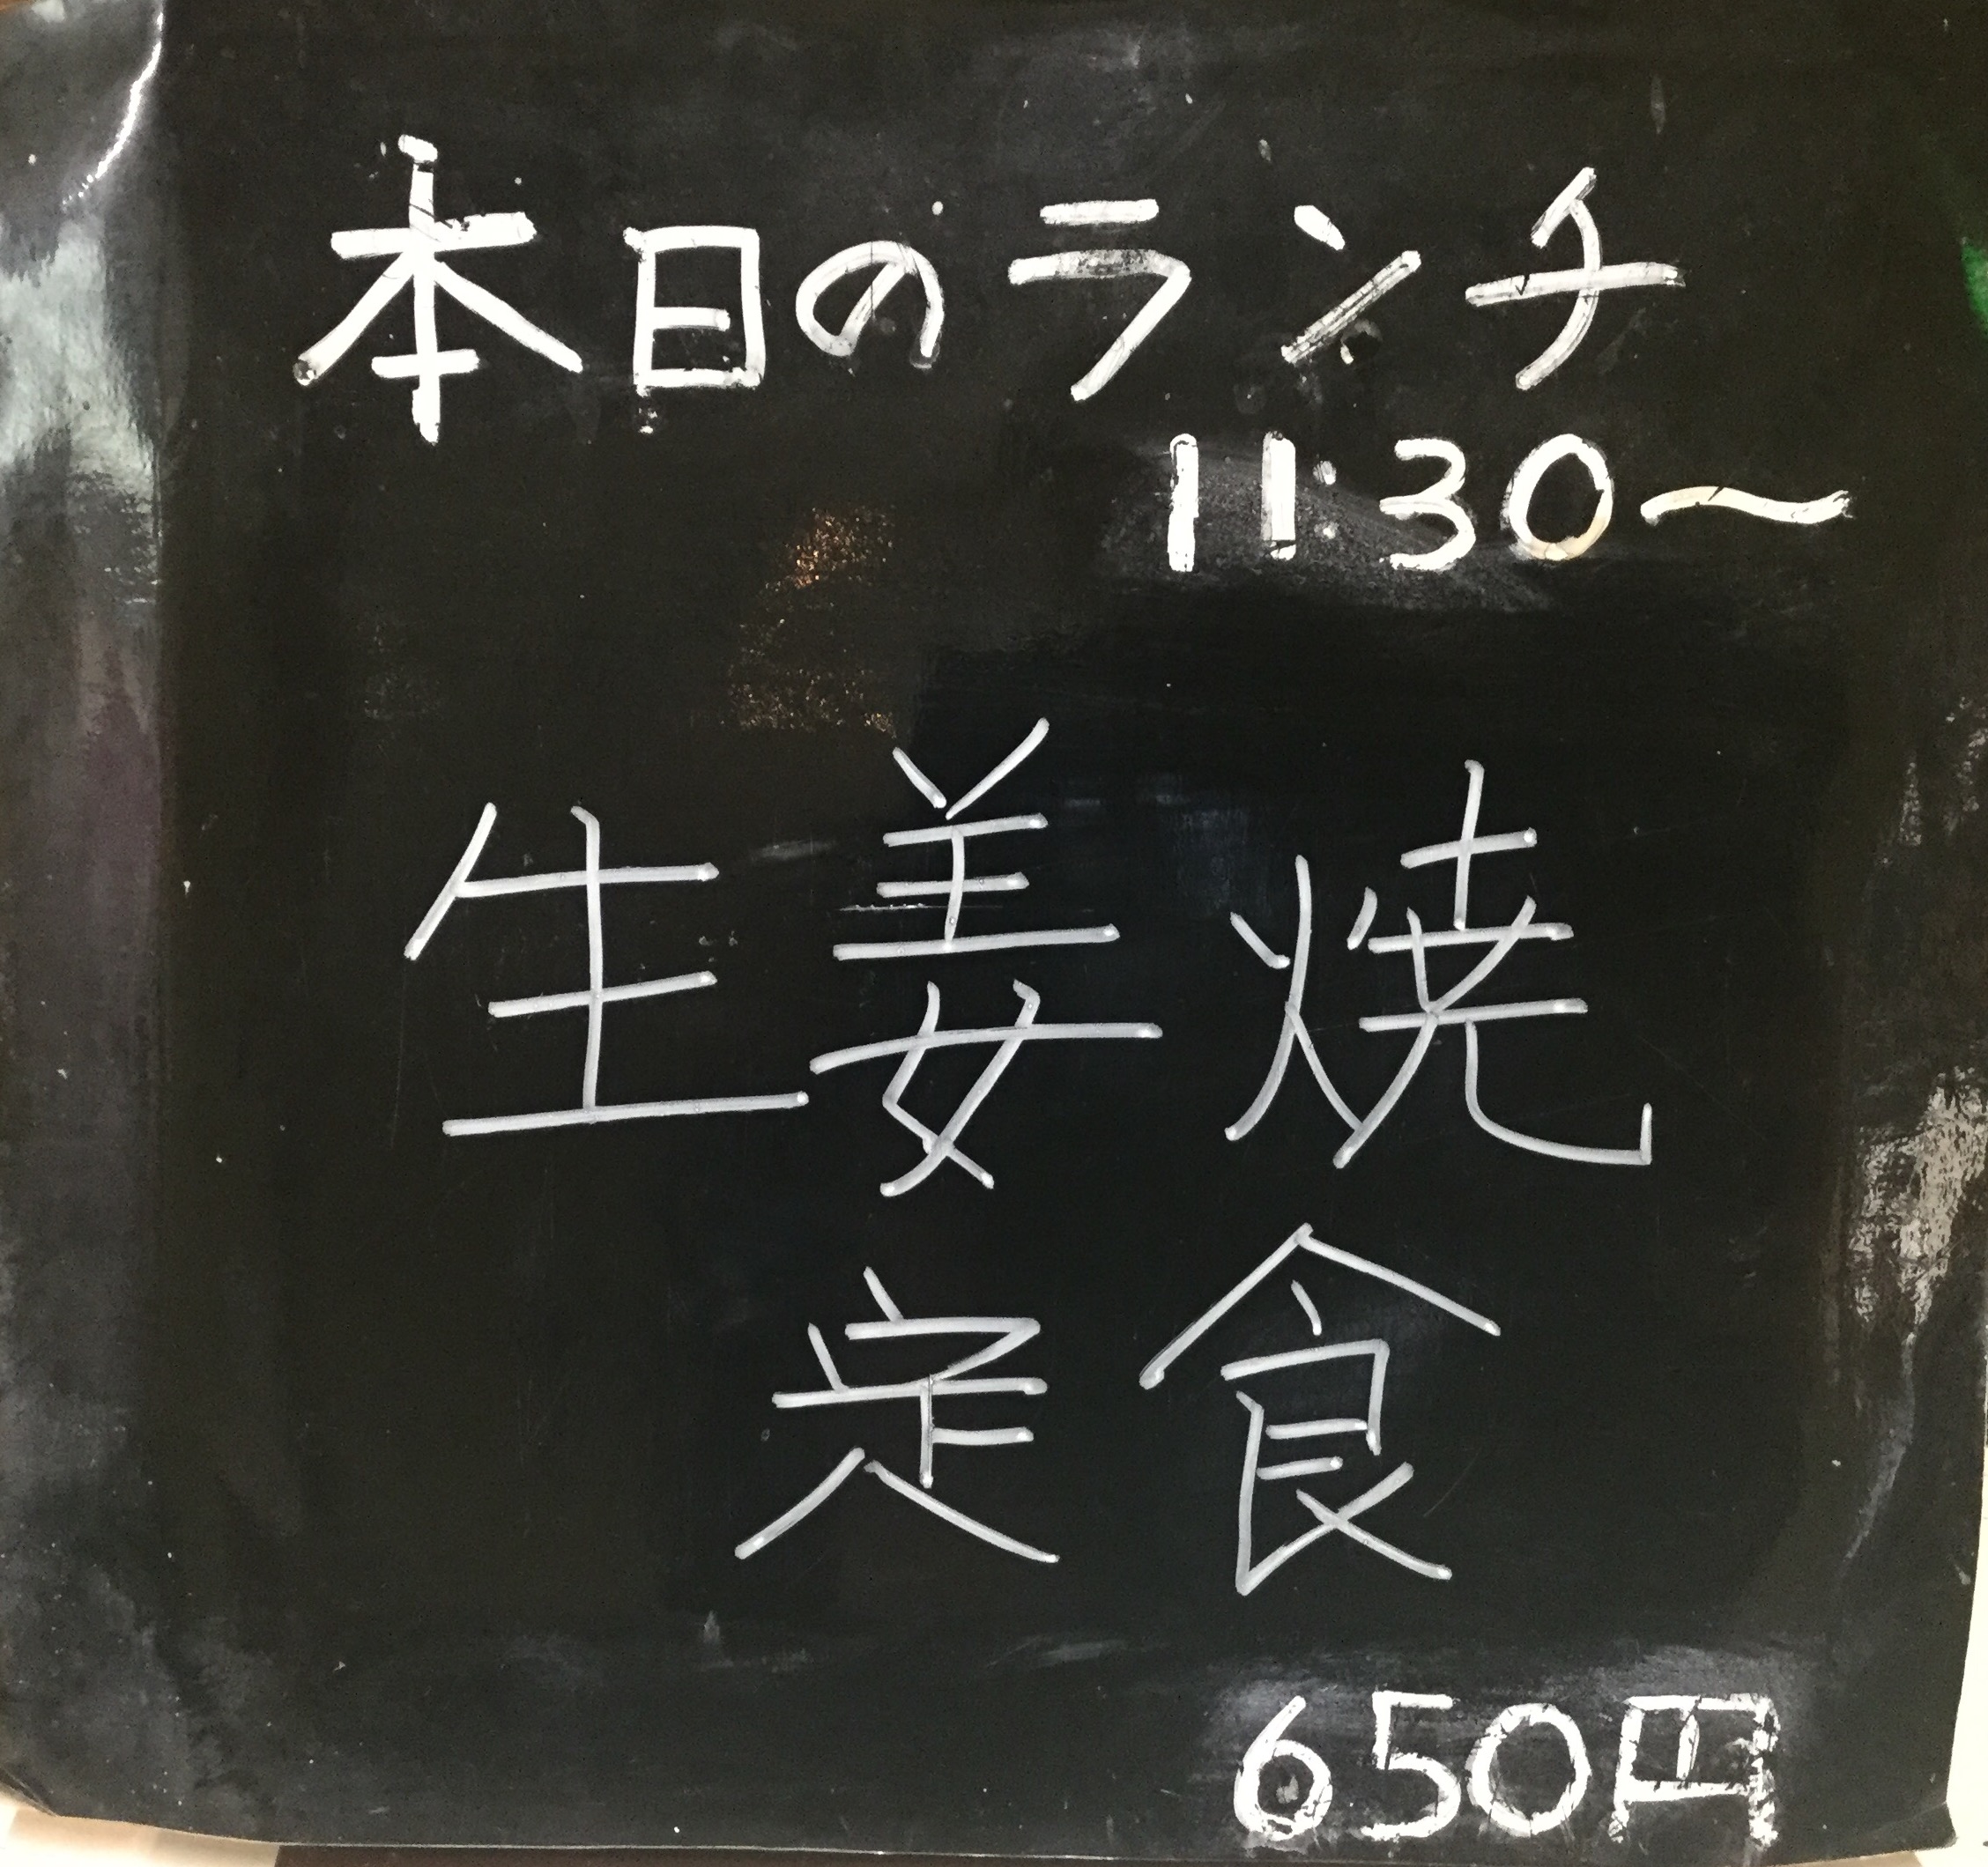 本日のランチ
11:30〜
生姜焼
定食
650円